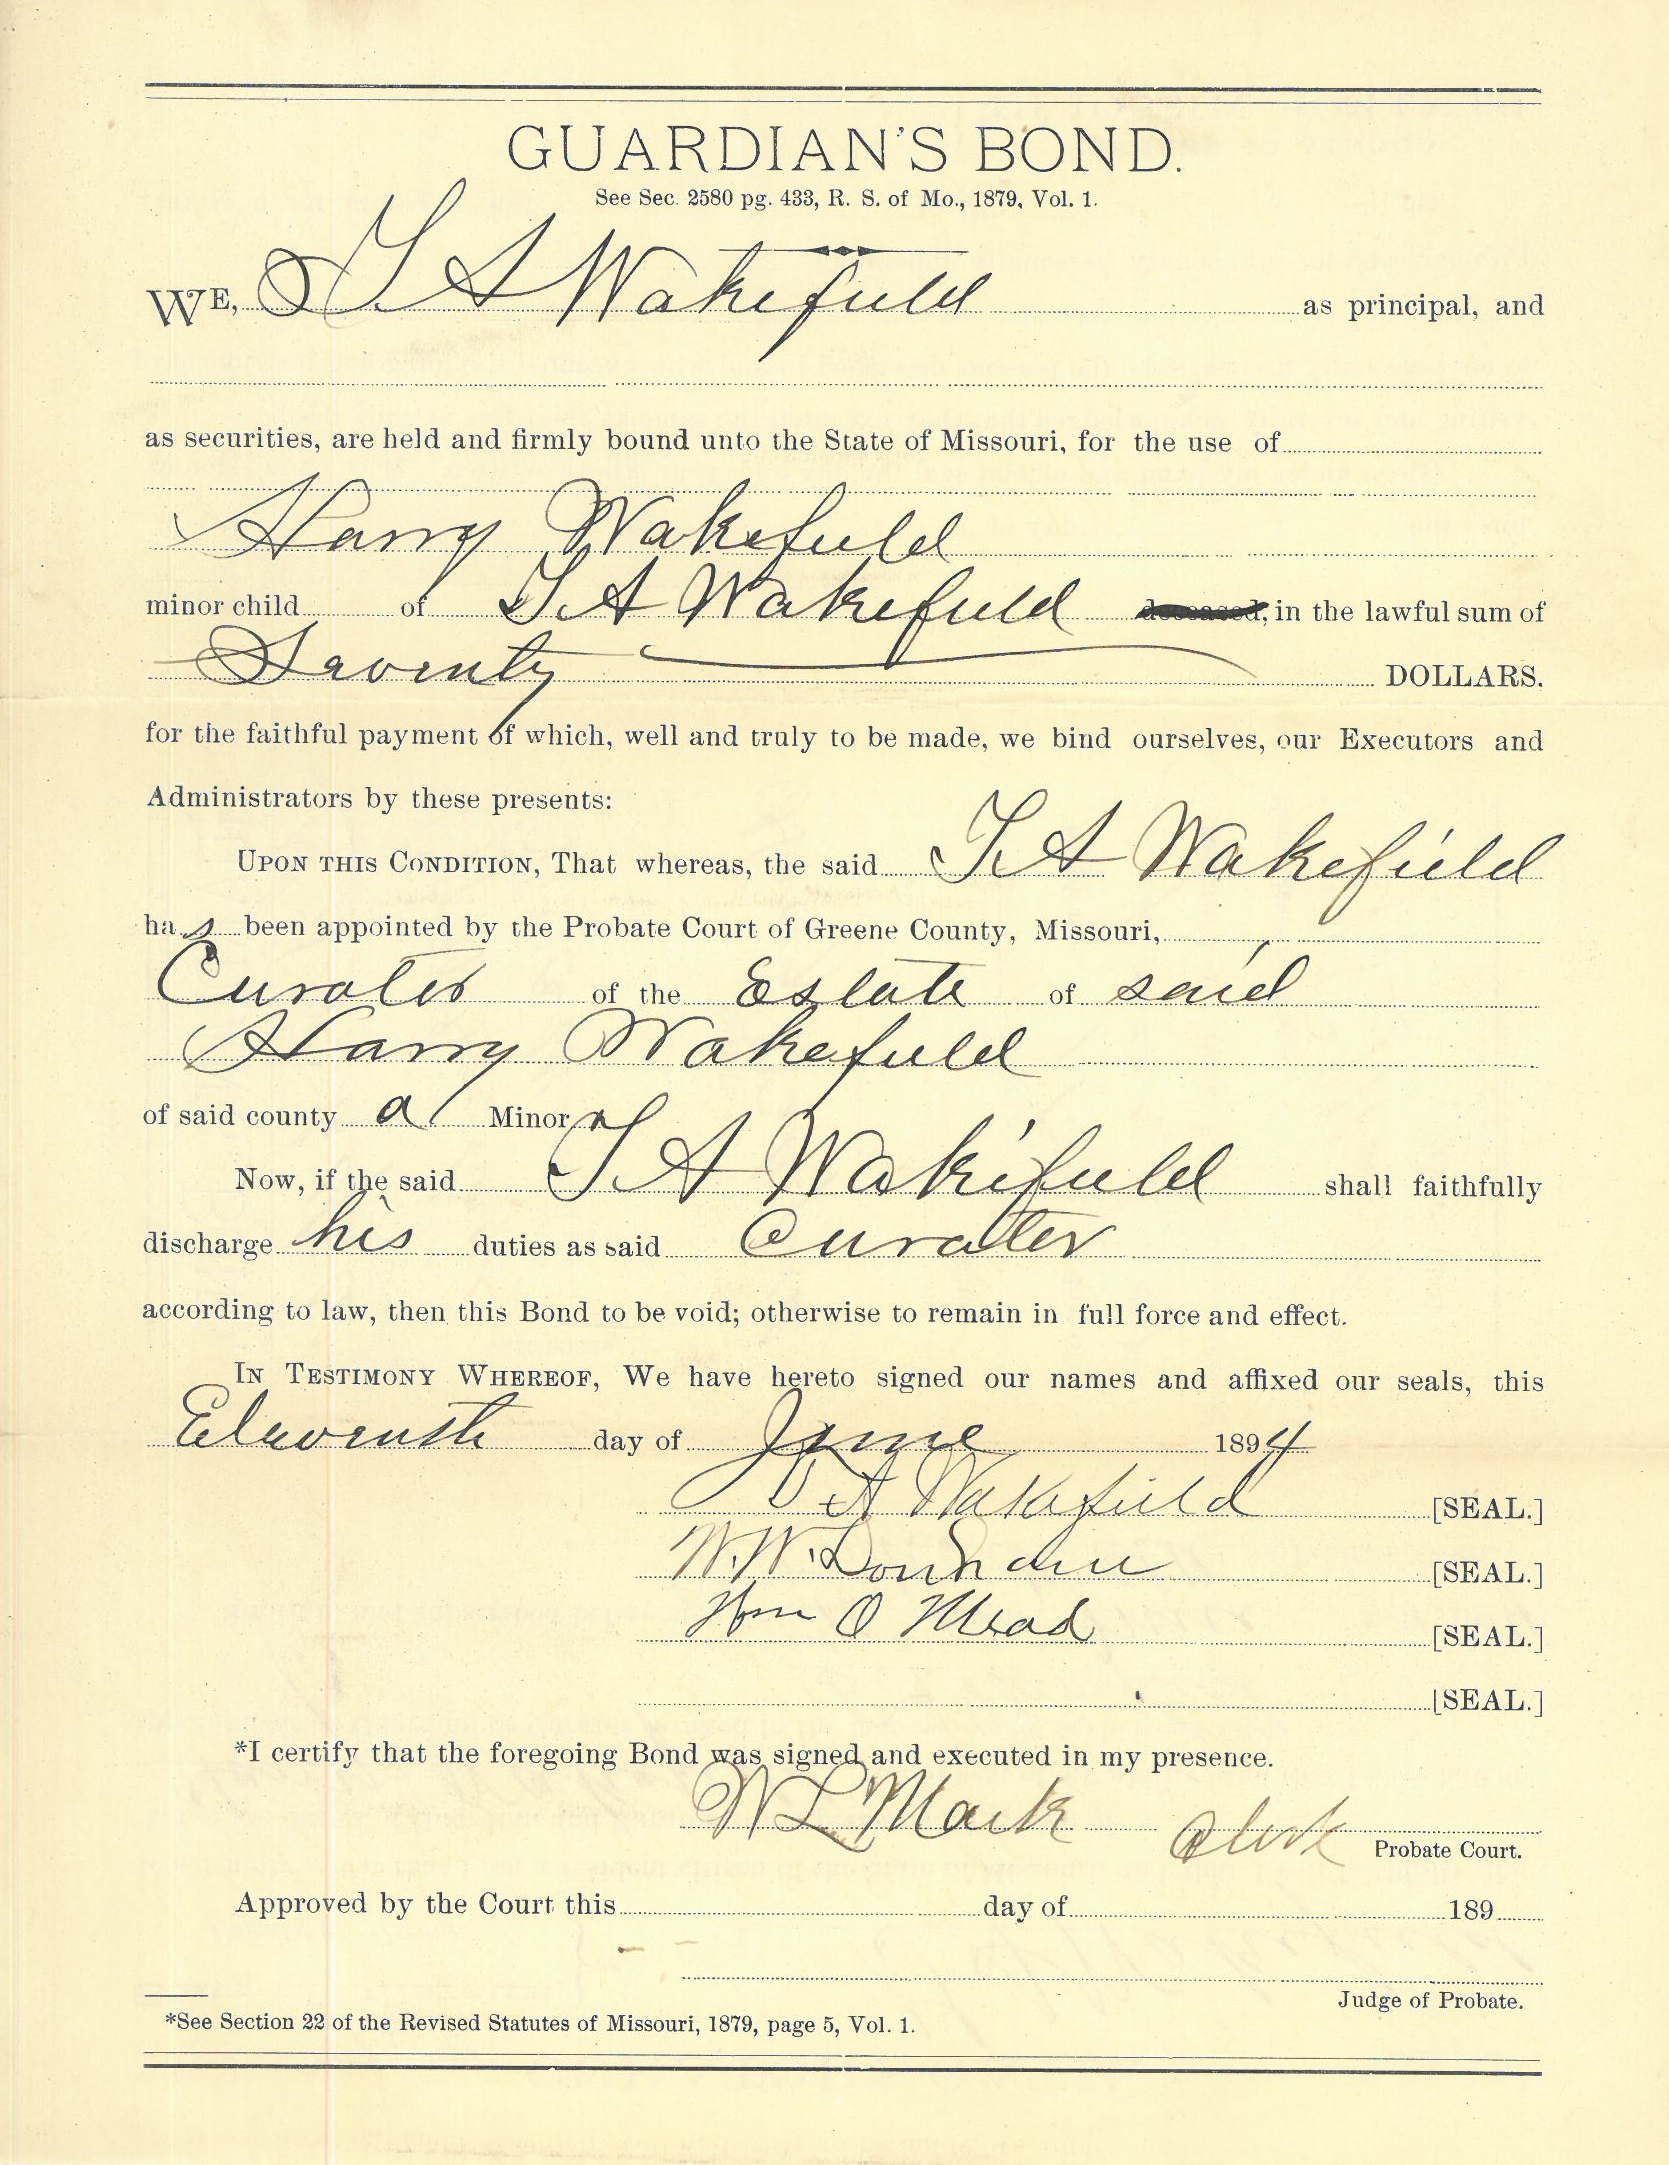 GUARDIAN'S BOND.
See Sec. 2580 pg. 433, R. S. of Mo., 1879, Vol. 1.
WE, T A Wakefield as principal, and
as securities, are held and firmly bound unto the State of Missouri, for the use of
Harry Wakefield
minor child of T A Wakefield deceased, in the lawful sum of
Seventy DOLLARS.
for the faithful payment of which, well and truly to be made, we bind ourselves, our Executors and
Administrators by these presents:
UPON THIS CONDITION, That whereas, the said T A Wakefield
has been appointed by the Probate Court of Greene County, Missouri,
Curator of the Estate of said
Harry Wakefield
of said county a Minor
Now, if the said T A Wakefield shall faithfully
discharge his duties as said Curator
according to law, then this Bond to be void; otherwise to remain in full force and effect.
IN TESTIMONY WHEREOF, We have hereto signed our names and affixed our seals, this
Eleventh day of June 1894
T A Wakefield [SEAL.]
W.W. Donham [SEAL.]
Wm O Mead [SEAL.]
[SEAL.]
*I certify that the foregoing Bond was signed and executed in my presence.
W L Mack Clerk
Probate Court.
Approved by the Court this day of 189
Judge of Probate.
*See Section 22 of the Revised Statutes of Missouri, 1879, page 5, Vol. 1.